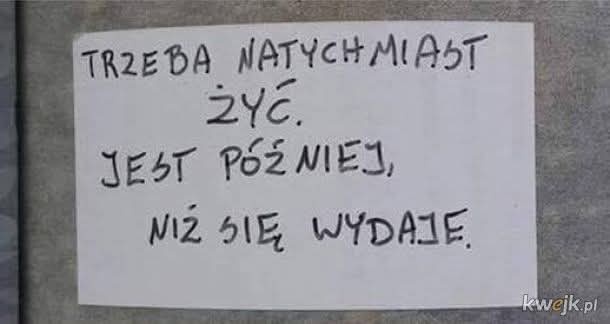 TRZEBA NATYCHMIAST
ŻYĆ.
JEST PÓŹNIEJ,
NIŻ SIĘ WYDAJE.
kwejk.pl